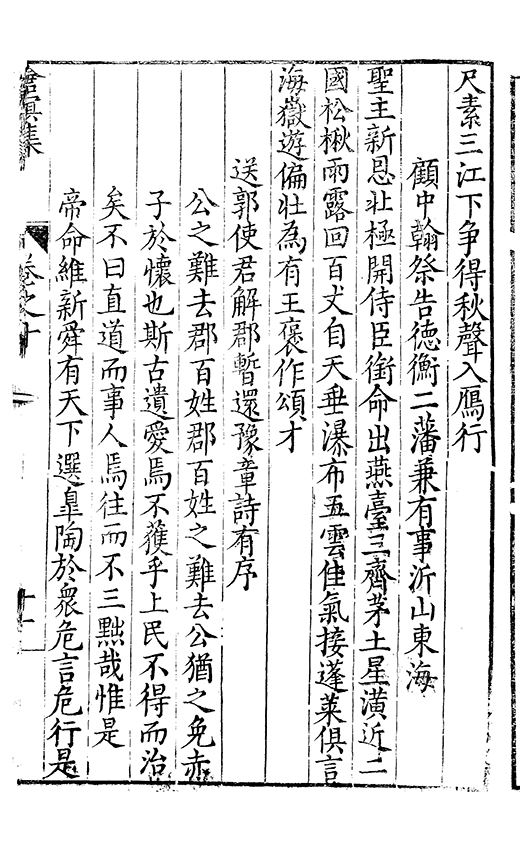 尺素三江下争得秋聲入鴈行
顧中翰祭告德衡二藩兼有事沂山東海
聖主新恩壯極開侍臣銜命出燕臺三齊茅土星潢近二
國松楸雨露回百丈自天垂瀑布五雲佳氣接蓬萊俱言
海嶽遊偏壯為有王褒作頌才
送郭使君解郡暫還豫章詩有序
公之難去郡百姓郡百姓之難去公猶之免赤
子於懷也斯古遺愛焉不獲乎上民不得而治
矣不曰直道而事人焉往而不三黜哉惟是
帝命維新舜有天下選臯陶於衆危言危行是
滄溟集
卷之十
十一